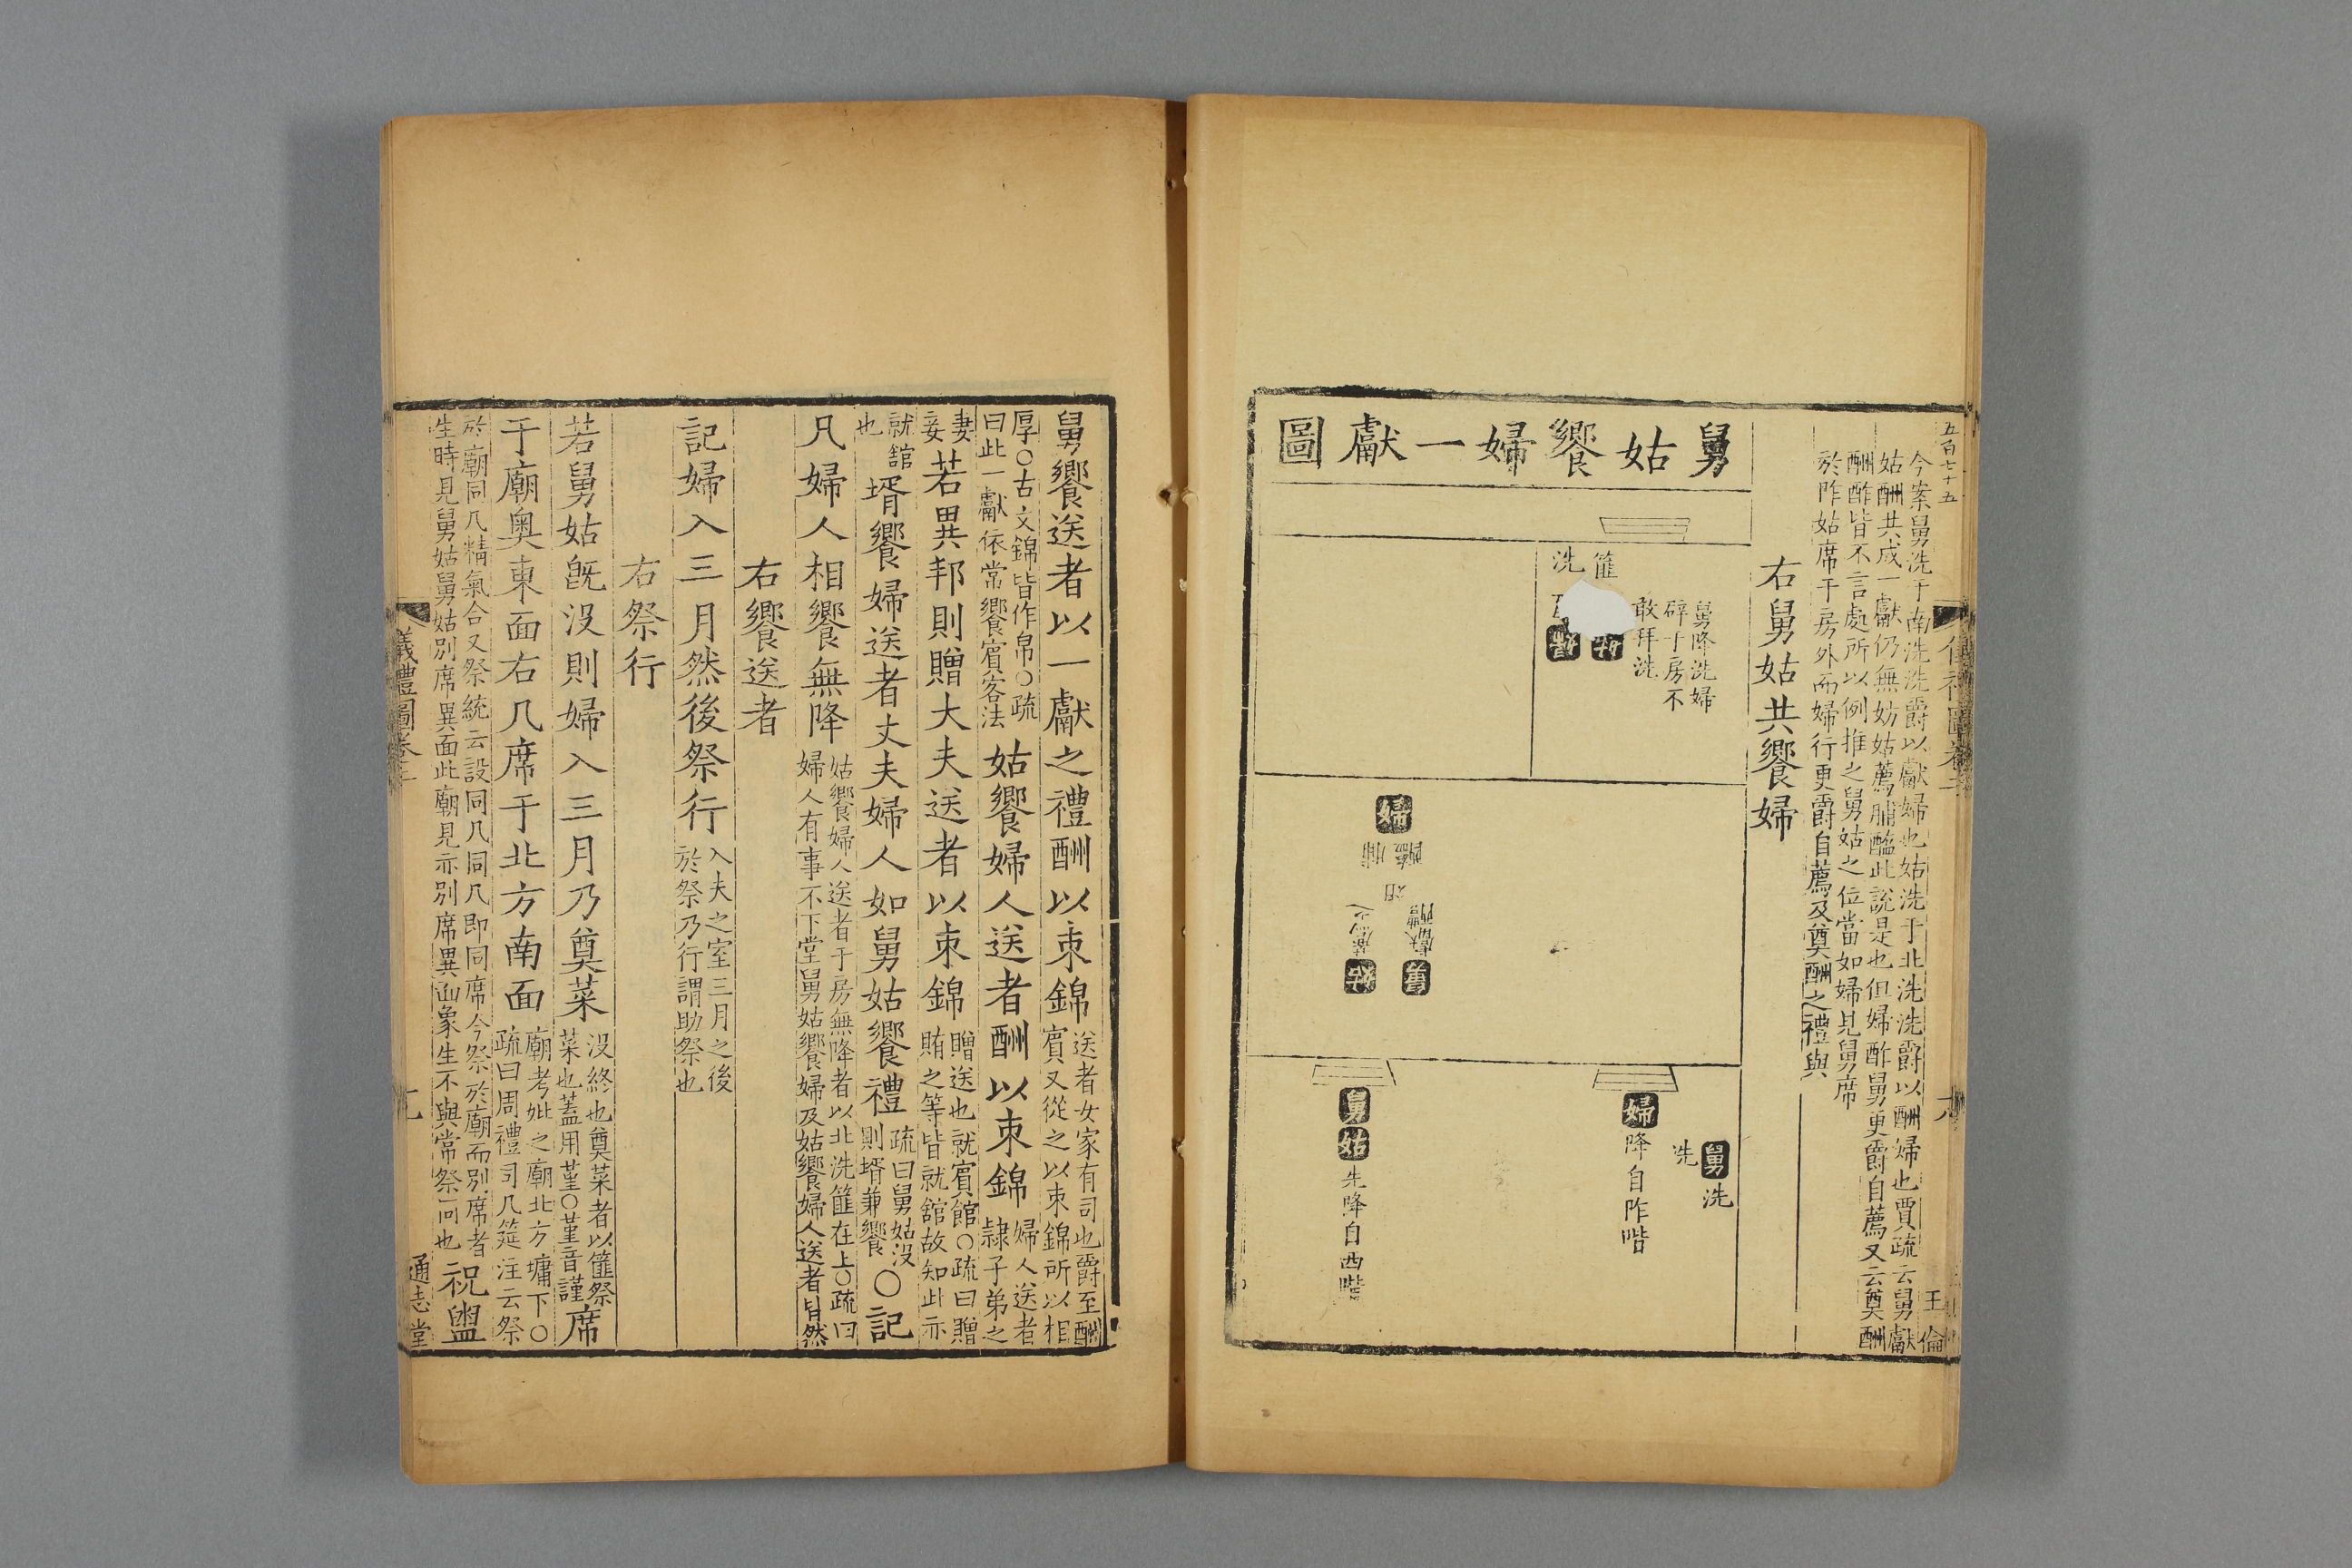 五百七十五
今案舅洗于南洗洗爵以獻婦也姑洗于北洗洗爵以酬婦也賈疏云舅獻
姑酬共成一獻仍無妨姑薦脯醢此說是也但婦酢舅更爵自薦又云奠酬
酬酢皆不言處所以例推之舅姑之位當如婦見舅席
於阼姑席于房外而婦行更爵自薦及奠酬之禮與
右舅姑共饗婦
舅姑饗婦一獻圖
舅降洗婦
辟于房不
敢拜洗
篚
洗
婦
脯
醢
薦之
獻醴
姑
舅
舅洗
洗
婦降自阼階
舅姑先降自西階
王倫
舅饗送者以一獻之禮酬以束錦送者女家有司也爵至酬
賓又從之以束錦所以相
厚○古文錦皆作帛○疏
曰此一獻依常饗賓客法姑饗婦人送者酬以束錦婦人送者
隷子弟之
妻
妾若異邦則贈大夫送者以束錦贈送也就賓館○疏曰贈
賄之等皆就舘故知此亦
就舘
也壻饗婦送者丈夫婦人如舅姑饗禮疏曰舅姑没
則壻兼饗○記
凡婦人相饗無降姑饗婦人送者于房無降者以北洗篚在上○疏曰
婦人有事不下堂舅姑饗婦及姑饗婦人送者皆然
右饗送者
記婦入三月然後祭行入夫之室三月之後
於祭乃行謂助祭也
右祭行
若舅姑旣没則婦入三月乃奠菜没終也奠菜者以篚祭
菜也蓋用堇○堇音謹席
于廟奥東面右几席于北方南面廟考妣之廟北方墉下○
疏曰周禮司几筵注云祭
於廟同几精氣合又祭統云設同几同几即同席今祭於廟而别席者
生時見舅姑舅姑别席異面此廟見亦别席異面象生不與常祭同也祝盥
儀禮圖卷三
通志堂